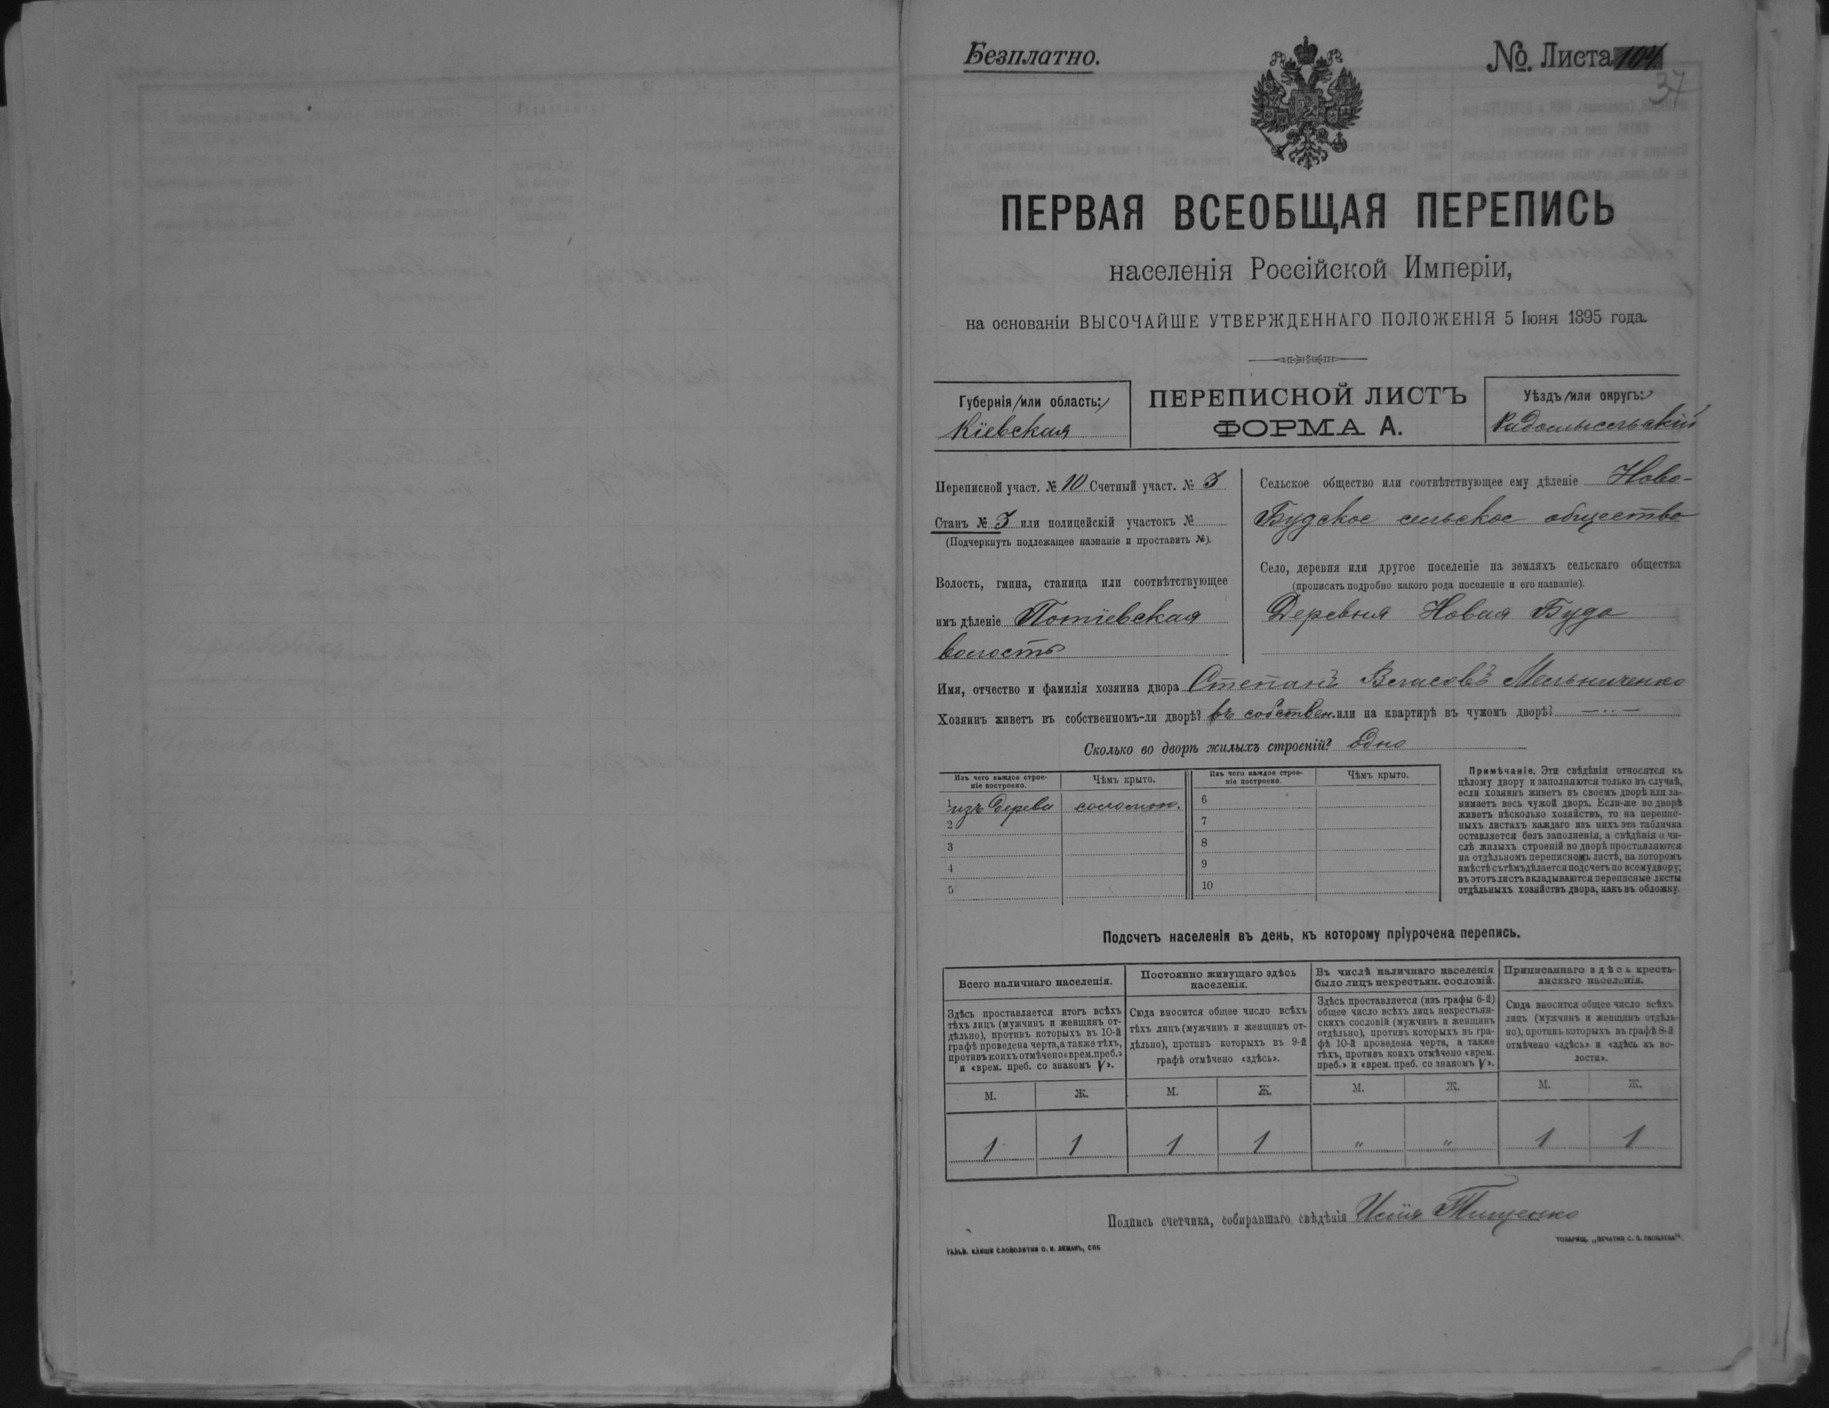 Безплатно.
№. Листа 104
37
ПЕРВАЯ ВСЕОБЩАЯ ПЕРЕПИСЬ
населенія Россійской Имперіи,
на основаніи ВЫСОЧАЙШЕ УТВЕРЖДЕННАГО ПОЛОЖЕНІЯ 5 Іюня 1895 года.
Губернія /или область:/
Кіевская
ПЕРЕПИСНОЙ ЛИСТЪ
ФОРМА А.
Уѣздъ /или округъ:/
Радомысльскій
Переписной участ. № 10 Счетный участ. № 3
Станъ № 3 или полицейскій участокъ №
(Подчеркнуть подлежащее названіе и проставить №).
Волость, гмина, станица или соотвѣтствующее
имъ дѣленіе Потіевская
волость
Сельское общество или соотвѣтствующее ему дѣленіе Ново-
Будское сельское общество
Село, деревня или другое поселеніе на земляхъ сельскаго общества
(прописать подробно какого рода поселеніе и его названіе).
Деревня Новая Буда
Имя, отчество и фамилія хозяина двора Степанъ Власовъ Мельниченко
Хозяинъ живетъ въ собственномъ-ли дворѣ? въ собствен. или на квартирѣ въ чужомъ дворѣ? —··—
Сколько во дворѣ жилыхъ строеній? одно
Изъ чего каждое строе-
ніе построено.
Чѣмъ крыто.
1 изъ дерева соломою.
2
3
4
5
Изъ чего каждое строе-
ніе построено.
Чѣмъ крыто.
6
7
8
9
10
Примѣчаніе. Эти свѣдѣнія относятся къ
цѣлому двору и заполняются только въ случаѣ,
если хозяинъ живетъ въ своемъ дворѣ или за-
нимаетъ весь чужой дворъ. Если-же во дворѣ
живетъ нѣсколько хозяйствъ, то на перепис-
ныхъ листахъ каждаго изъ нихъ эта табличка
оставляется безъ заполненія, а свѣдѣнія о чи-
слѣ жилыхъ строеній во дворѣ проставляются
на отдѣльномъ переписномъ листѣ, на которомъ
вмѣстѣ съ тѣмъ дѣлается подсчетъ по всему двору;
въ этотъ листъ вкладываются переписные листы
отдѣльныхъ хозяйствъ двора, какъ въ обложку.
Подсчетъ населенія въ день, къ которому пріурочена перепись.
Всего наличнаго населенія.
Здѣсь проставляется итогъ всѣхъ
тѣхъ лицъ (мужчинъ и женщинъ от-
дѣльно), противъ которыхъ въ 10-й
графѣ проведена черта, а также тѣхъ,
противъ коихъ отмѣчено «врем. преб.»
и «врем. преб. со знакомъ V».
М. Ж.
1 1
Постоянно живущаго здѣсь
населенія.
Сюда вносится общее число всѣхъ
тѣхъ лицъ (мужчинъ и женщинъ от-
дѣльно), противъ которыхъ въ 9-й
графѣ отмѣчено «здѣсь».
М. Ж.
1 1
Въ числѣ наличнаго населенія
было лицъ некрестьян. сословій.
Здѣсь проставляется (изъ графы 6-й)
общее число всѣхъ лицъ некрестьян-
скихъ сословій (мужчинъ и женщинъ
отдѣльно), противъ которыхъ въ гра-
фѣ 10-й проведена черта, а также
тѣхъ, противъ коихъ отмѣчено «врем.
преб.» и «врем. преб. со знакомъ V».
М. Ж.
" "
Приписаннаго здѣсь кресть-
янскаго населенія.
Сюда вносится общее число всѣхъ
лицъ (мужчинъ и женщинъ отдѣль-
но), противъ которыхъ въ графѣ 8-й
отмѣчено «здѣсь» и «здѣсь къ во-
лости».
М. Ж.
1 1
Подпись счетчика, собиравшаго свѣдѣнія Илія Тищенко
ГАЛЬВ. КЛИШЕ СЛОВОЛИТНИ О. И. ЛЕМАНЪ, СПБ
ТОВАРИЩ. „ПЕЧАТНЯ С. П. ЯКОВЛЕВА".